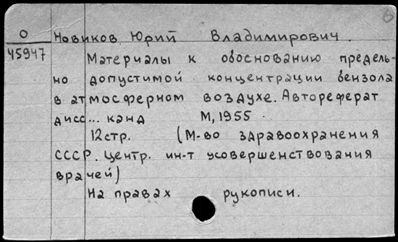 О Новиков Юрий Владимирович.
45947 Материалы к обоснованию предель-
но допустимой концентрации бензола
в атмосферном воздухе. Автореферат
дисс... канд М, 1955
12стр. (М-во здравоохранения
СССР. Центр. ин-т усовершенствования
врачей)
На правах рукописи.